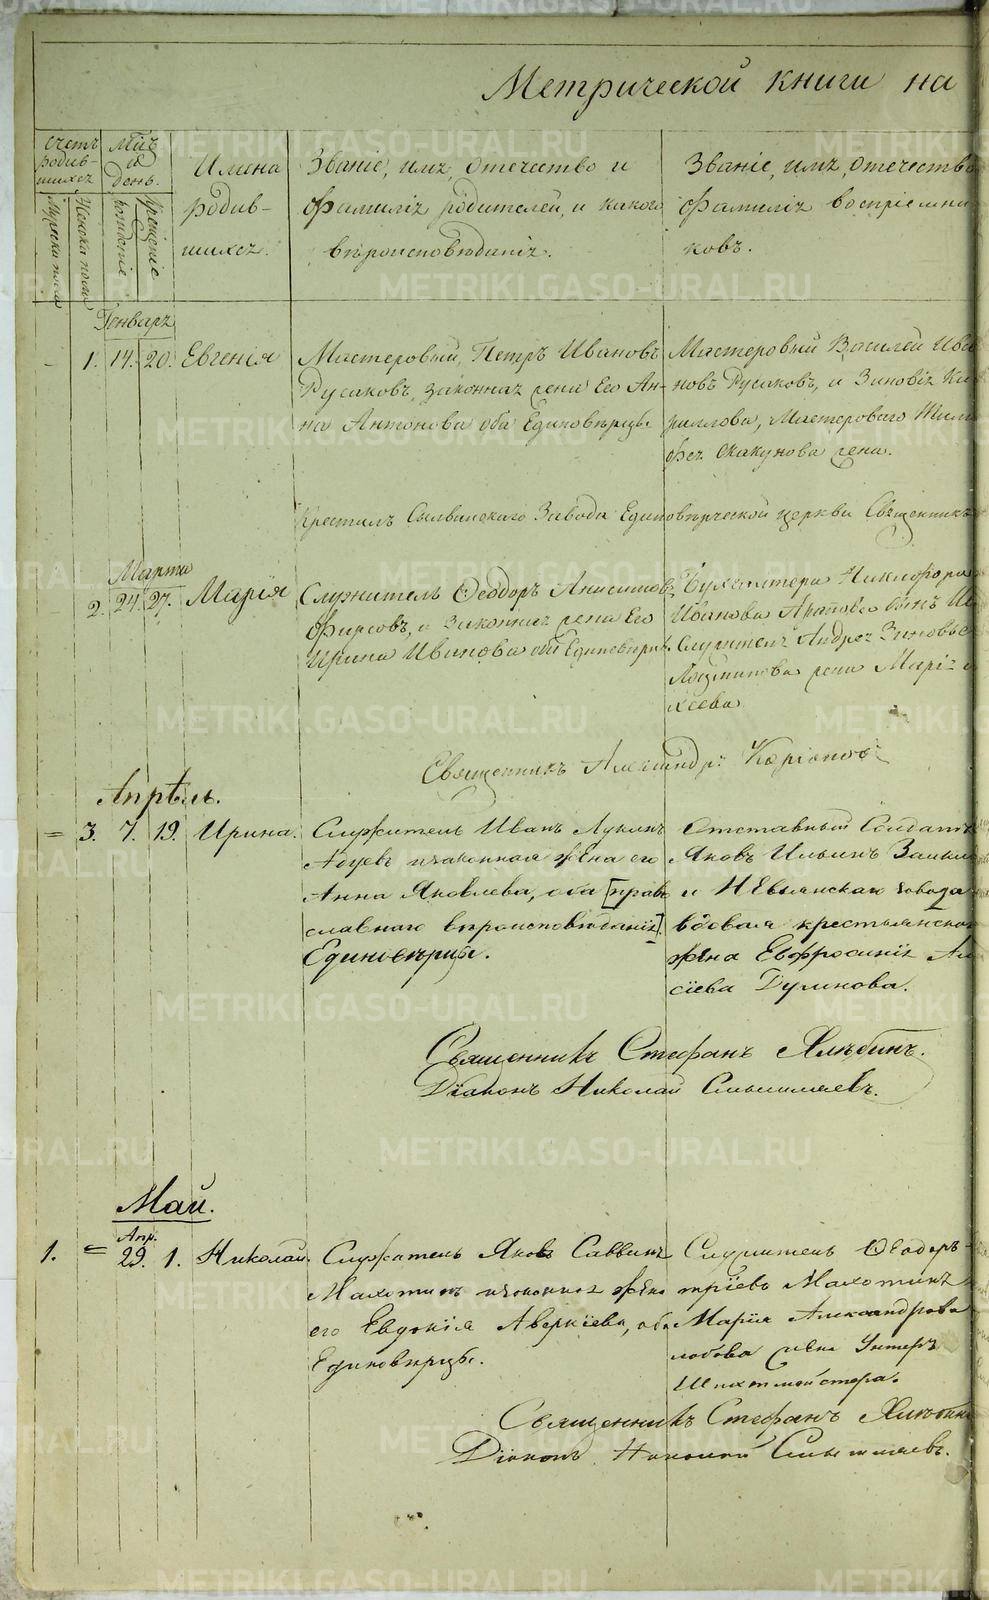 Метрической книги на
Счетъ родив-шихсѧ
Мц҃ъ и день.
Имена родив-шихсѧ.
Званіе, имѧ, отечество и
фамилія родителей, и какого
вѣроисповѣданія.
Званіе, имѧ, отечество
фамилія воспріемни
ковъ.
Мужска пола
Женска пола
рожденіе
крещеніе
Генварѧ
1. 14. 20. Евгенія
Мастеровый, Петръ Ивановъ
Русаковъ, законнаѧ жена Его Ан-
на Антонова оба Единовѣрцы
Мастеровый Василей Ива
новъ Русаковъ, и Зиновіѧ Ки
риллова, Мастероваго
Скакунова жена.
Крестилъ Сылвинскаго Завода Единовѣрческой церкви Священникъ
Марта
2. 24. 27. Марія
Служитель Ѳеодоръ Анисимовъ
Фирсовъ, и Законнаѧ жена Его
Ирина Иванова оба Единовѣрцы.
Бухгалтера Никифора
Иванова
Служителѧ Андреѧ Зиновье
жена Маріѧ
хеева
Священникъ Александръ
Апрѣль.
= 3. 7. 19. Ирина.
Служитель Иванъ Лукинъ
и законная жена его
Анна Яковлева, оба [право
славнаго вѣроисповѣданія].
Единовѣрцы.
Отставный Солдатъ
Яковъ Ильинъ
и Невьянскаго завода
вдовая крестьянская
жена Евфросиніѧ Ал
сіева Дулинова.
Священникъ Стефанъ Хлѣбинъ.
Діаконъ Николай Смышляевъ.
Май.
Апр.
1. = 29. 1. Николай.
Служитель Яковъ Саввинъ
Махотинъ и законная жена
его Евдокія Аверкіева, оба
Единовѣрцы.
Служитель Ѳеодоръ
тріевъ Махотинъ
Марія Александрова
лобова жена Унтеръ
Шихтмейстера.
Священникъ Стефанъ Хлѣбинъ
Діаконъ Николай Смышляевъ.
METRIKI.GASO-URAL.RU